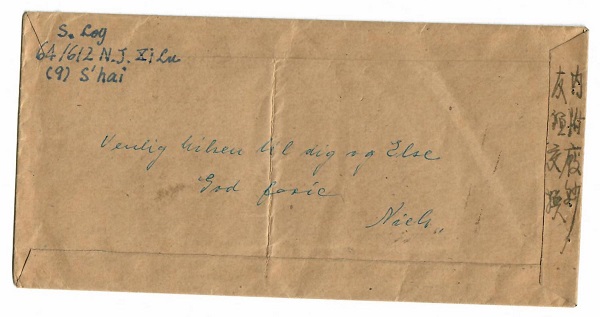 S. Log
64/612 N.J. Xi Lu
(9) S'hai
Venlig hilsen til dig og Else
God ferie
Niels
内附廢
友交換